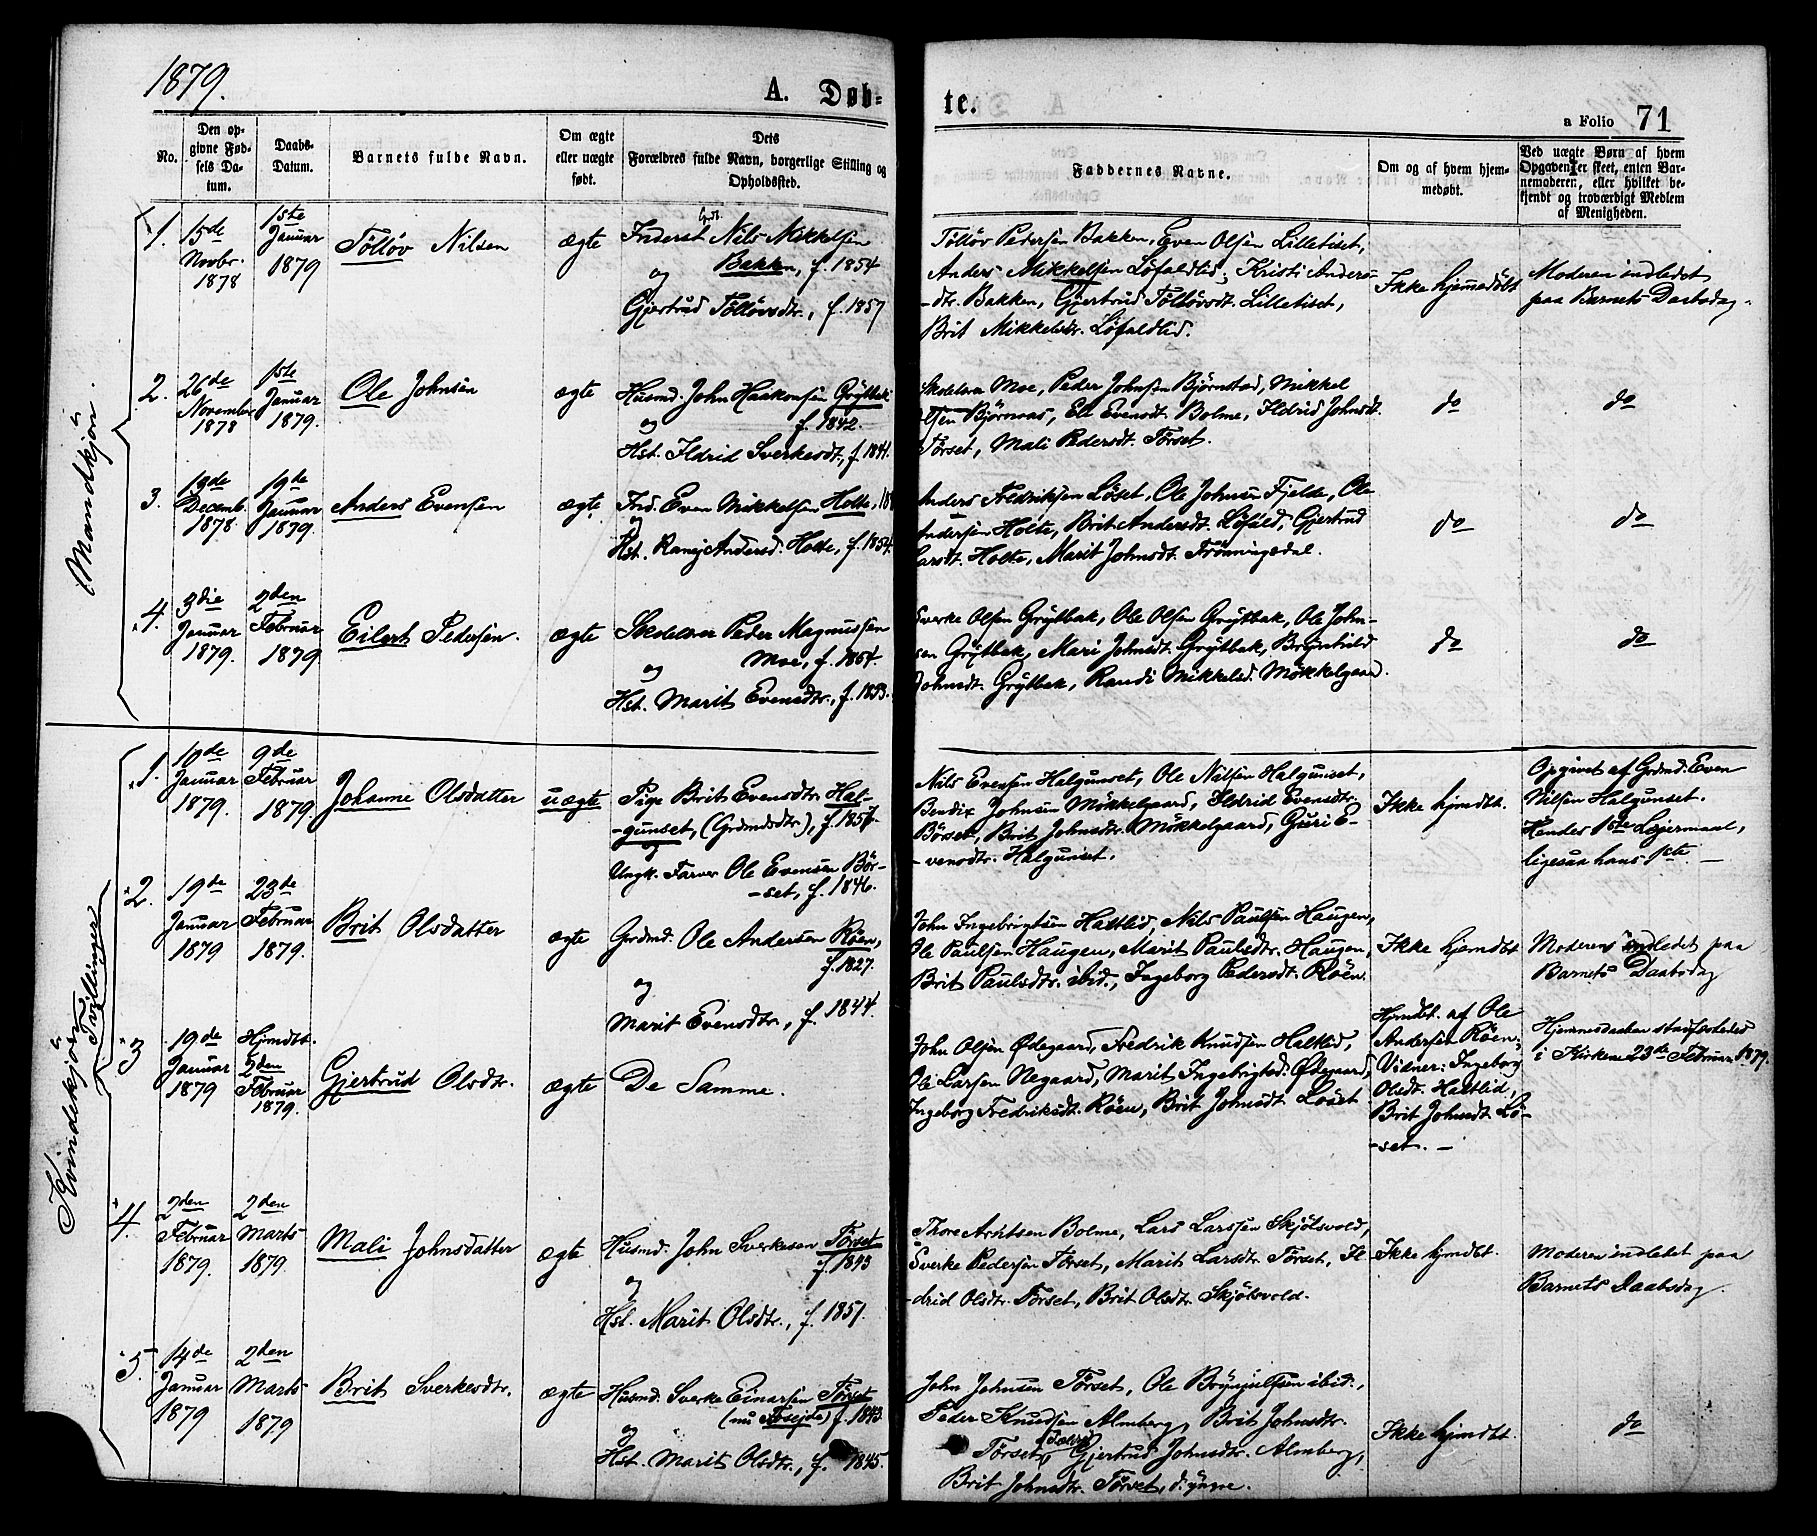 1879.
A. Døb-
te.
a Folio 71
No.
Den op-
givne Fød-
sels Da-
tum.
Daabs-
Datum.
Barnets fulde Navn.
Om ægte
eller uægte
født.
Dets
Forældres fulde Navn, borgerlige Stilling og
Opholdssted.
Faddernes Navne.
Om og af hvem hjem-
medøbt.
Ved uægte Børn af hvem
Opgaven er skeet, enten Bar-
nemoderen, eller hvilket be-
kjendt og troværdigt Medlem
af Menigheden.
Mandkjön.
1.
15de
Novbr.
1878
1ste
Januar
1879
Tölløv Nilsen
ægte
Inderst Nils Mikkelsen
Bakken, f. 1854
og
Gjertrud Tölløvsdtr., f. 1857
Tölløv Pedersen Bakken, Even Olsen Lilletiset,
Anders Mikkelsen Løfaldlid, Kristi Anders-
-dtr. Bakken, Gjertrud Tölløvsdt. Lilletiset,
Brit Mikkelsdtr. Løfaldlid.
Ikke hjemmedøbt
Moderen indledet
paa Barnets Daabsdag.
2.
26de
November
1878
1ste
Januar
1879.
Ole Johnsen
ægte
Husmd. John Haakonsen Grytbak
og f. 1842.
Hst. Ildrid Sverkesdt., f. 1841.
Skolelærer Moe, Peder Johnsen Bjørnstad, Mikkel
Olsen Bjørnaas, Eli Evensdt. Bolme, Ildrid Johnsdt.
Törset, Mali Pedersdt. Törset.
do
do
3.
19de
Decemb.
1878
19de
Januar
1879.
Anders Evensen
ægte
Ind. Even Mikkelsen Holte, 18
og
Hst. Ranej Andersd. Holte, f. 1854.
Anders Fredriksen Löset, Ole Johnsen Fjelde, Ole
Andersen Holte, Brit Andersdt. Løfald, Gjertrud
Larsdt. Holte, Marit Johnsdt. Trönningsdal.
do
do
4.
3die
Januar
1879.
2den
Februar
1879
Eilert Pedersen.
ægte
Skolelærer Peder Magnussen
Moe, f. 1854.
og
Hst. Marit Evensdtr., f. 1853.
Sverke Olsen Grytbak, Ole Olsen Grytbak, Ole John-
sen Grytbak, Mari Johnsdt. Grytbak, Brynhild
Johnsdt. Grytbak, Randi Mikkelsd. Mökkelgaard.
do
do
Kvindekjön.
1.
10de
Januar
1879.
9de
Februar
1879.
Johanne Olsdatter
uægte
Pige Brit Evensdtr. Hal-
-gunset, (Grdmdsdtr.), f. 1857
og
Ungk. Farver Ole Evensen Bör-
-set, f. 1846.
Nils Evensen Halgunset, Ole Nilsen Halgunset,
Bendix Johnsen Mökkelgaard, Ildrid Evensdtr.
Börset, Brit Johnsdtr. Mökkelgaard, Guri E-
-vensdtr. Halgunset.
Ikke hjmdbt.
Opgivet af Grdmd. Even
Nilsen Halgunset.
Hendes 1ste Lejermaal,
ligesaa hans 1ste —
Tvillinger
2.
19de
Januar
1879
23de
Februar
1879.
Brit Olsdatter
ægte
Grdmd. Ole Andersen Röen,
f. 1827.
og
Marit Evensdtr., f. 1844.
John Ingebrigtsen Haltlid, Nils Paulsen Haugen,
Ole Paulsen Haugen, Marit Paulsdtr. Haugen,
Brit Paulsdtr. ibid., Ingeborg Pedersdt. Röen.
Ikke hjemdbt
Moderen indledet paa
Barnets Daabsdag
3
19de
Januar
1879
Hjmdbt.
2den
Februar
1879.
Gjertrud Olsdtr.
ægte
De Samme.
John Olsen Ødegaard, Fredrik Knudsen Haltlid,
Ole Larsen Negaard, Marit Ingebrigtsd. Ødegaard,
Ingeborg Fredriksdt. Röen, Brit Johnsdt. Löset
Hjmdbt. af Ole
Andersen Röen;
Vidner: Ingeborg
Olsdt. Haltlid,
Brit Johnsdt. Lö-
-set. —
Hjemmedaaben stadfæstedes
i Kirken 23de Februar 1879.
4.
2den
Februar
1879.
2den
Marts
1879
Mali Johnsdatter
ægte
Husmd. John Sverkesen Törset
f. 1843
og
Hst. Marit Olsdtr., f. 1851.
Thore Arntsen Bolme, Lars Larssen Skjölsvold,
Sverke Pedersen Törset, Marit Larsdtr. Törset, Il
-drid Olsdtr. Törset, Brit Olsdtr. Skjölsvold.
Ikke hjmdbt.
Moderen indledet paa
Barnets Daabsdag.
5.
14de
Januar
1879
2den
Marts
1879
Brit Sverkesdtr.
ægte
Husmd. Sverke Einarsen Törset
(nu ) f. 1843
og
Hst. Marit Olsdtr., f. 1845.
John Johnsen Törset, Ole Brynjulfsen ibid.,
Peder Knudsen Almberg, Brit Johnsdtr.
Törset, Gjertrud Johnsdtr. Almberg,
Brit Johnsdtr. Törset, d. yngre.
Ikke hjmdbt.
do